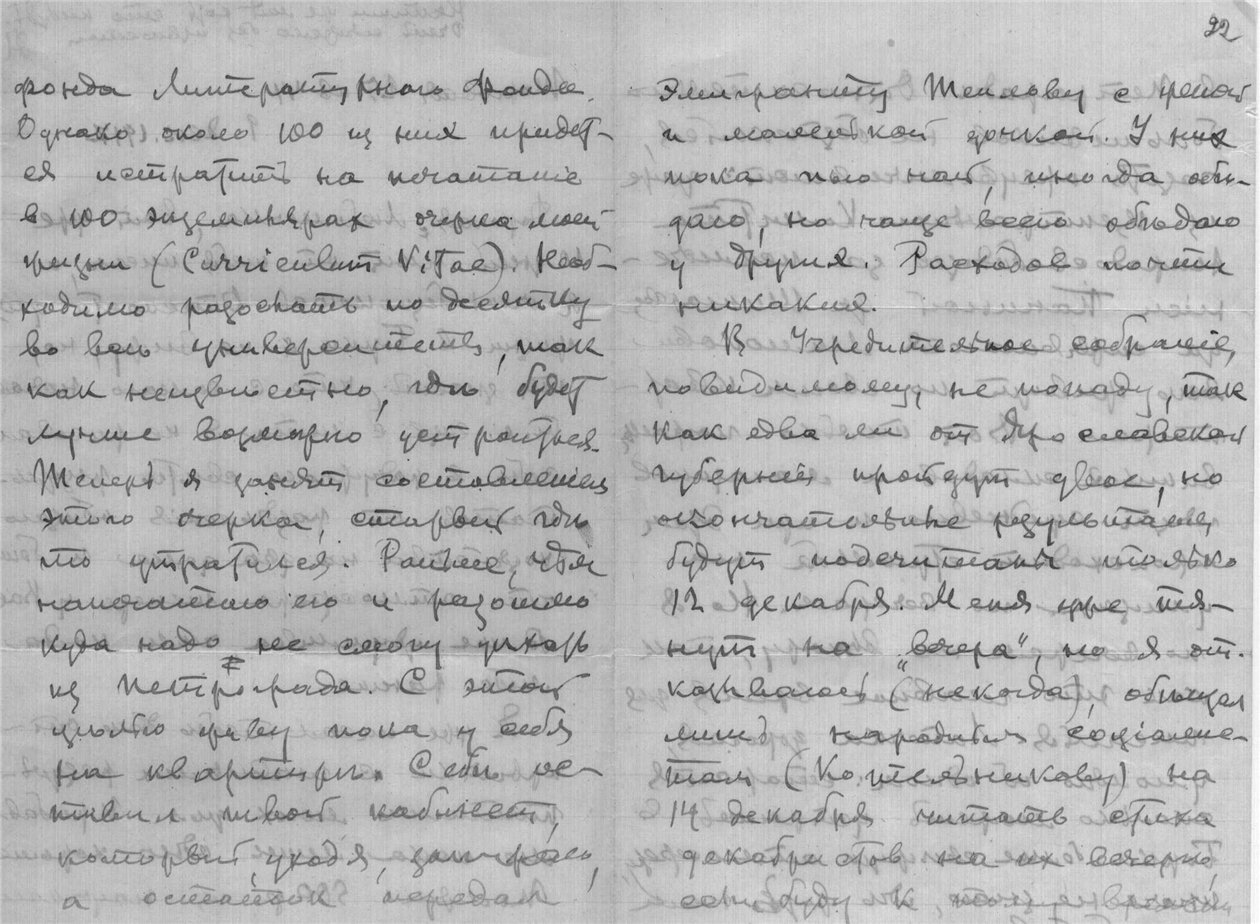 22
фонда Литературного Фонда.
Однако около 100 из них придет-
ся истратить на печатание
в 100 экземплярах очерка моей
жизни (Curriculum Vitae). Необ-
ходимо разослать по десятку
во все университеты, так
как неизвестно, где будет
лучше возможно устроиться.
Теперь я занят составлением
этого очерка, старый где
то утратился. Раньше, чем
напечатаю его и разошлю
куда надо не смогу уехать
из Петрограда. С этой
целью живу пока у себя
на квартире. Себе ос-
тавил твой кабинет,
который, уходя, запираю,
а остаток передал
эмигранту Теплову с женой
и маленькой дочкой. У них
пока пью чай, иногда обе-
даю, но чаще всего обедаю
у других. Расходов почти
никаких.
В Учредительное собрание,
повидимому, не попаду, так
как едва ли от Ярославской
губернии пройдут двое, но
окончательные результаты
будут подсчитаны только
12 декабря. Меня уже тя-
нут на „вечера“, но я от-
казываюсь (некогда), обещал
лишь народным социалис-
там (Котельникову) на
14 декабря читать стихи
декабристов на их вечере,
если буду к